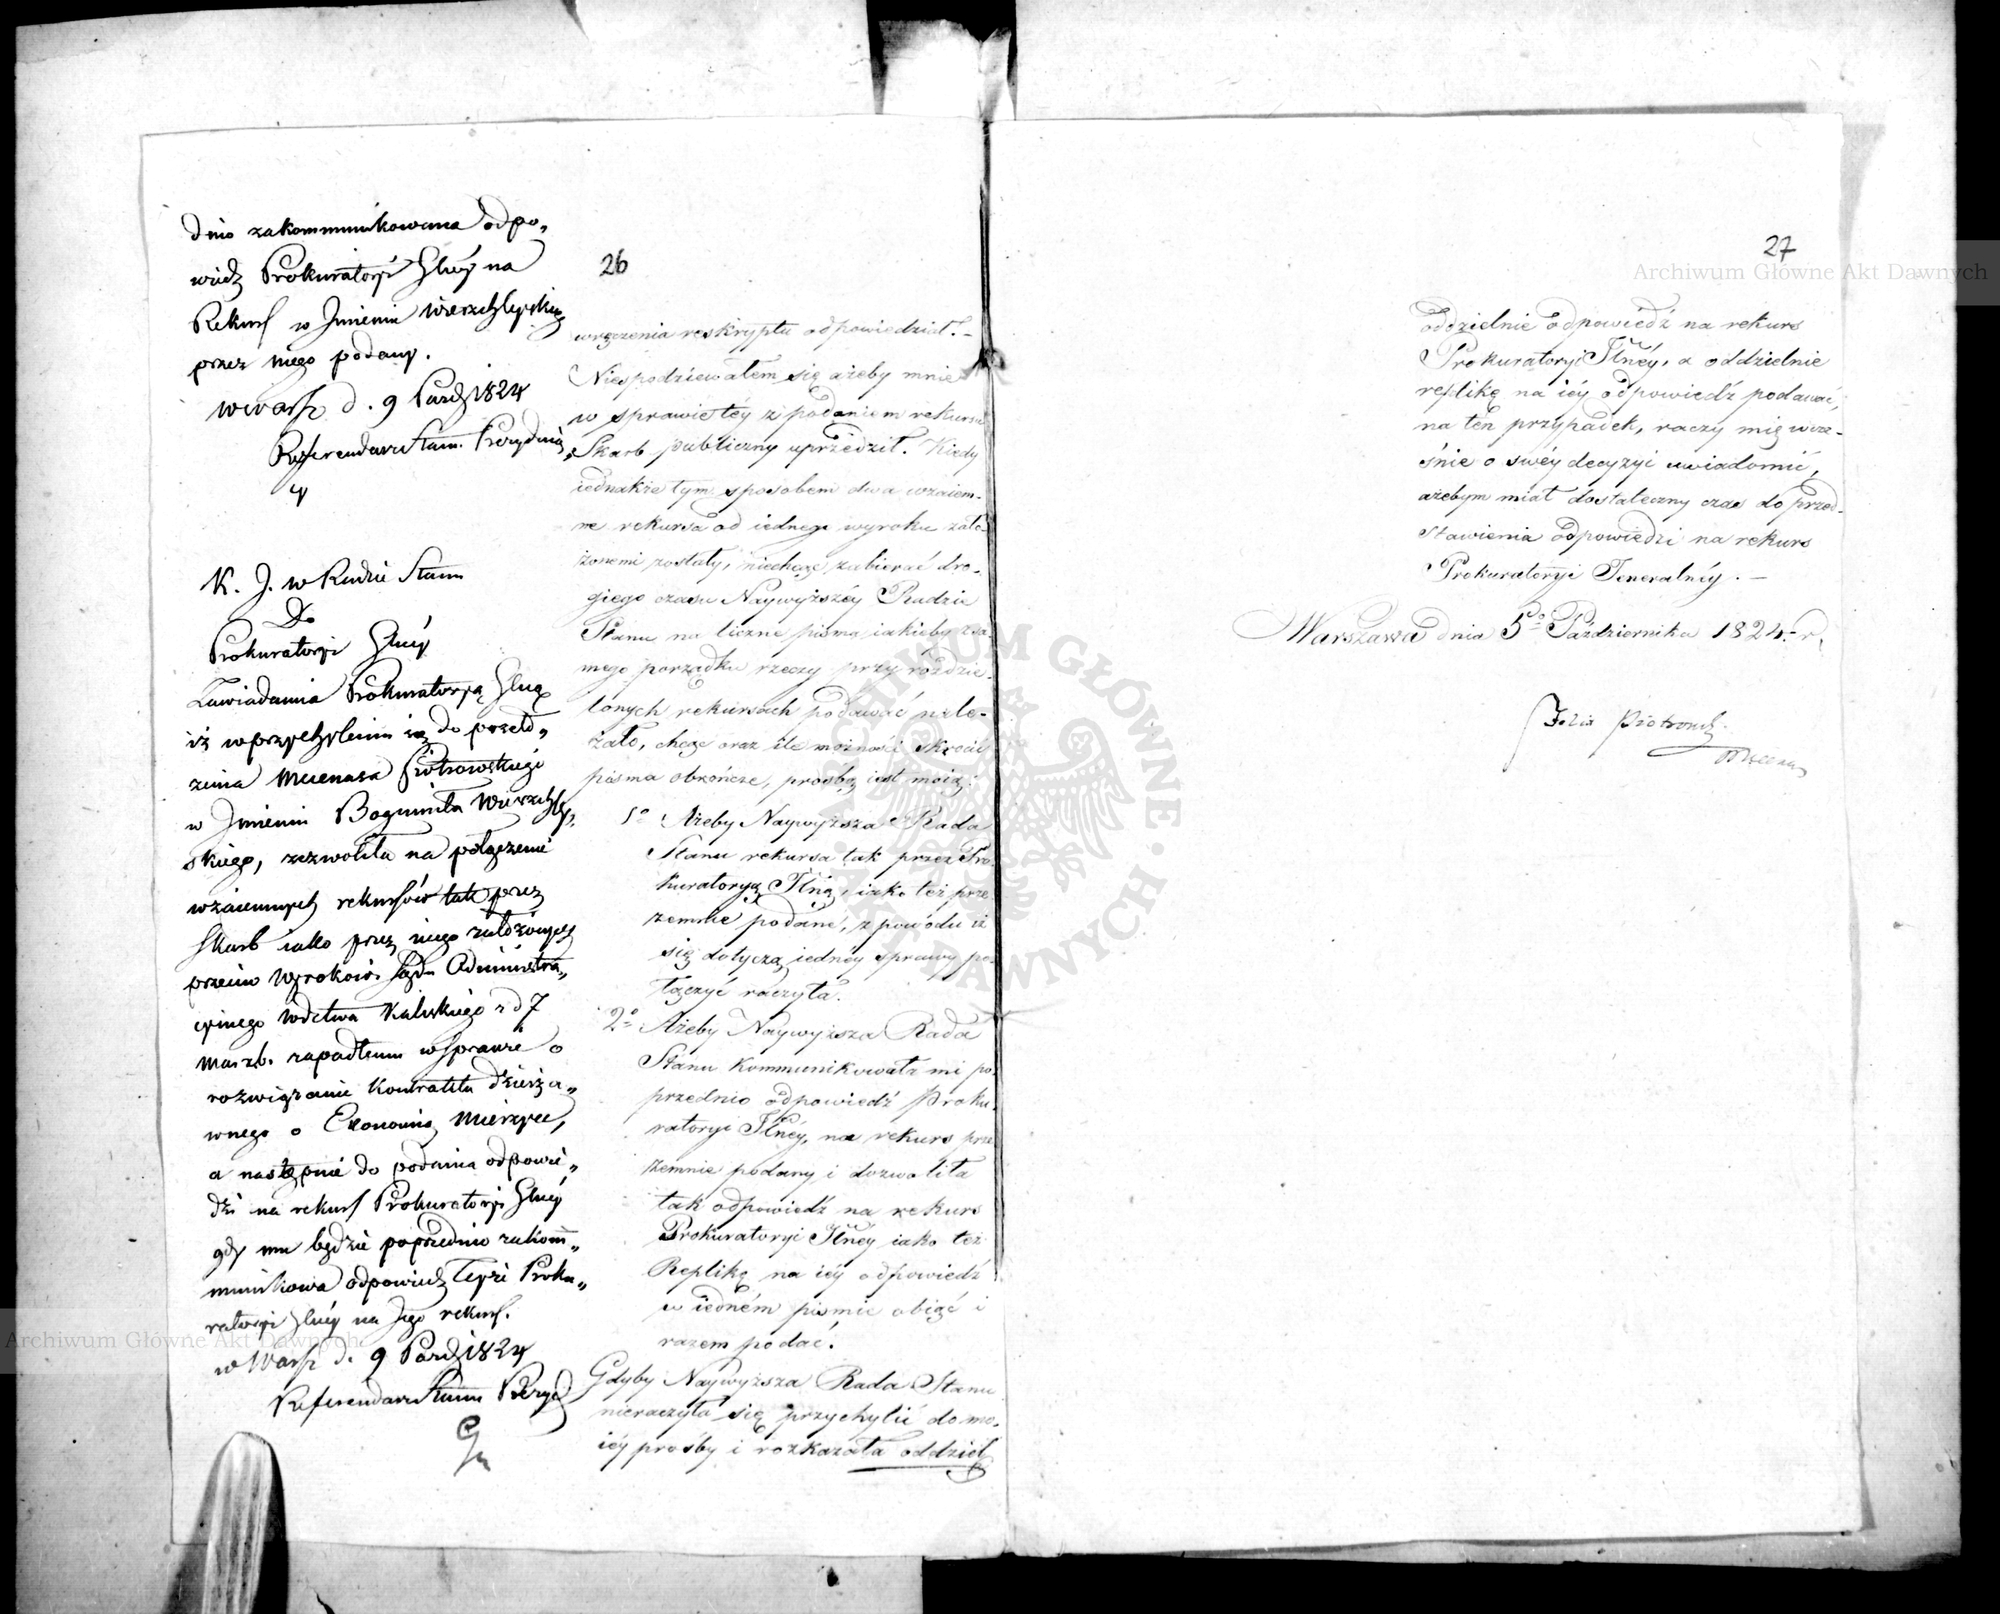 dnio zakommunikowana odpo„
wiedz Prokuratoryi Glney na
Rekurs w Jmieniu Wierzchleyskiego
przez niego podany.
w Warsz. d. 9 Pazdz 1824
Referendarz Stanu Prezyduiący
K. J. w Radzie Stanu
Do
Prokuratoryi Glney
Zawiadamia Prokuratoryą Glną
iż w przychyleniu się do przeło„
żenia Mecenasa Piotrowskiego
w Jmieniu Bogumiła Wierzchley„
skiego, zezwoliła na połączenie
wzaiemnych rekursów tak przez
Skarb iako przez niego założonych
przeciw Wyrokowi Sądu Administra„
cyinego Wdctwa Kaliskiego z d 7
Marzb. zapadłemu w Sprawie o
rozwiązanie Kontraktu dzierża„
wnego o Ekonomią Mierzyce,
a następnie do podania odpowie„
dzi na rekurs Prokuratoryi Glney
gdy mu będzie poprzednio zakom„
munikowa odpowiedz Teyże Proku„
ratoryi Glney na Jego rekurs.
w Warsz d. 9 Pazdz 1824
Referendarz Stanu Prezyd
26
wręczenia reskryptu odpowiedział. –
Niespodziewałem się ażeby mnie
w sprawie téy z podaniem rekursu
Skarb publiczny uprzedził. Kiedy
iednakże tym sposobem dwa wzaiem-
ne rekursa od iednego wyroku zało-
żonemi zostały, niechcąc zabierać dro-
giego czasu Naywyższéy Radzie
Stanu na liczne pisma iakieby z sa-
mego porządku rzeczy przy rozdzie-
lonych rekursach podawać nale-
żało, chcąc oraz ile możności skrócić
pisma obrończe, prośbą iest moią:
1o Ażeby Naywyższa Rada
Stanu rekursa tak przez Pro-
kuratoryą Jlną, iako też prze
zemnie podane, z powodu iż
się dotyczą iednéy sprawy po-
łączyć raczyła.
2o Ażeby Naywyższa Rada
Stanu kommunikowała mi po-
przednio odpowiedź Proku-
ratoryi Jlnéy, na rekurs prze
zemnie podany i dozwoliła
tak odpowiedź na rekurs
Prokuratoryi Jlnéy iako też
Replikę na iéy odpowiedź
w iedném pismie obiąć i
razem podać.
Gdyby Naywyższa Rada Stanu
nieraczyła się przychylić do mo-
iéy prośby i rozkazała oddziel
27
oddzielnie odpowiedź na rekurs
Prokuratoryi Jlnéy, a oddzielnie
replikę na iéy odpowiedź podawać,
na ten przypadek, raczy mię wcze-
śnie o swéy decyzyi uwiadomić,
ażebym miał dostateczny czas do przed-
stawienia odpowiedzi na rekurs
Prokuratoryi Jeneralnéy. –
Warszawa dnia 5go Października 1824. r.
Piotrowski
Mecenas
Archiwum Główne Akt Dawnych
Archiwum Główne Akt Dawnych
ARCHIWUM GŁÓWNE AKT DAWNYCH